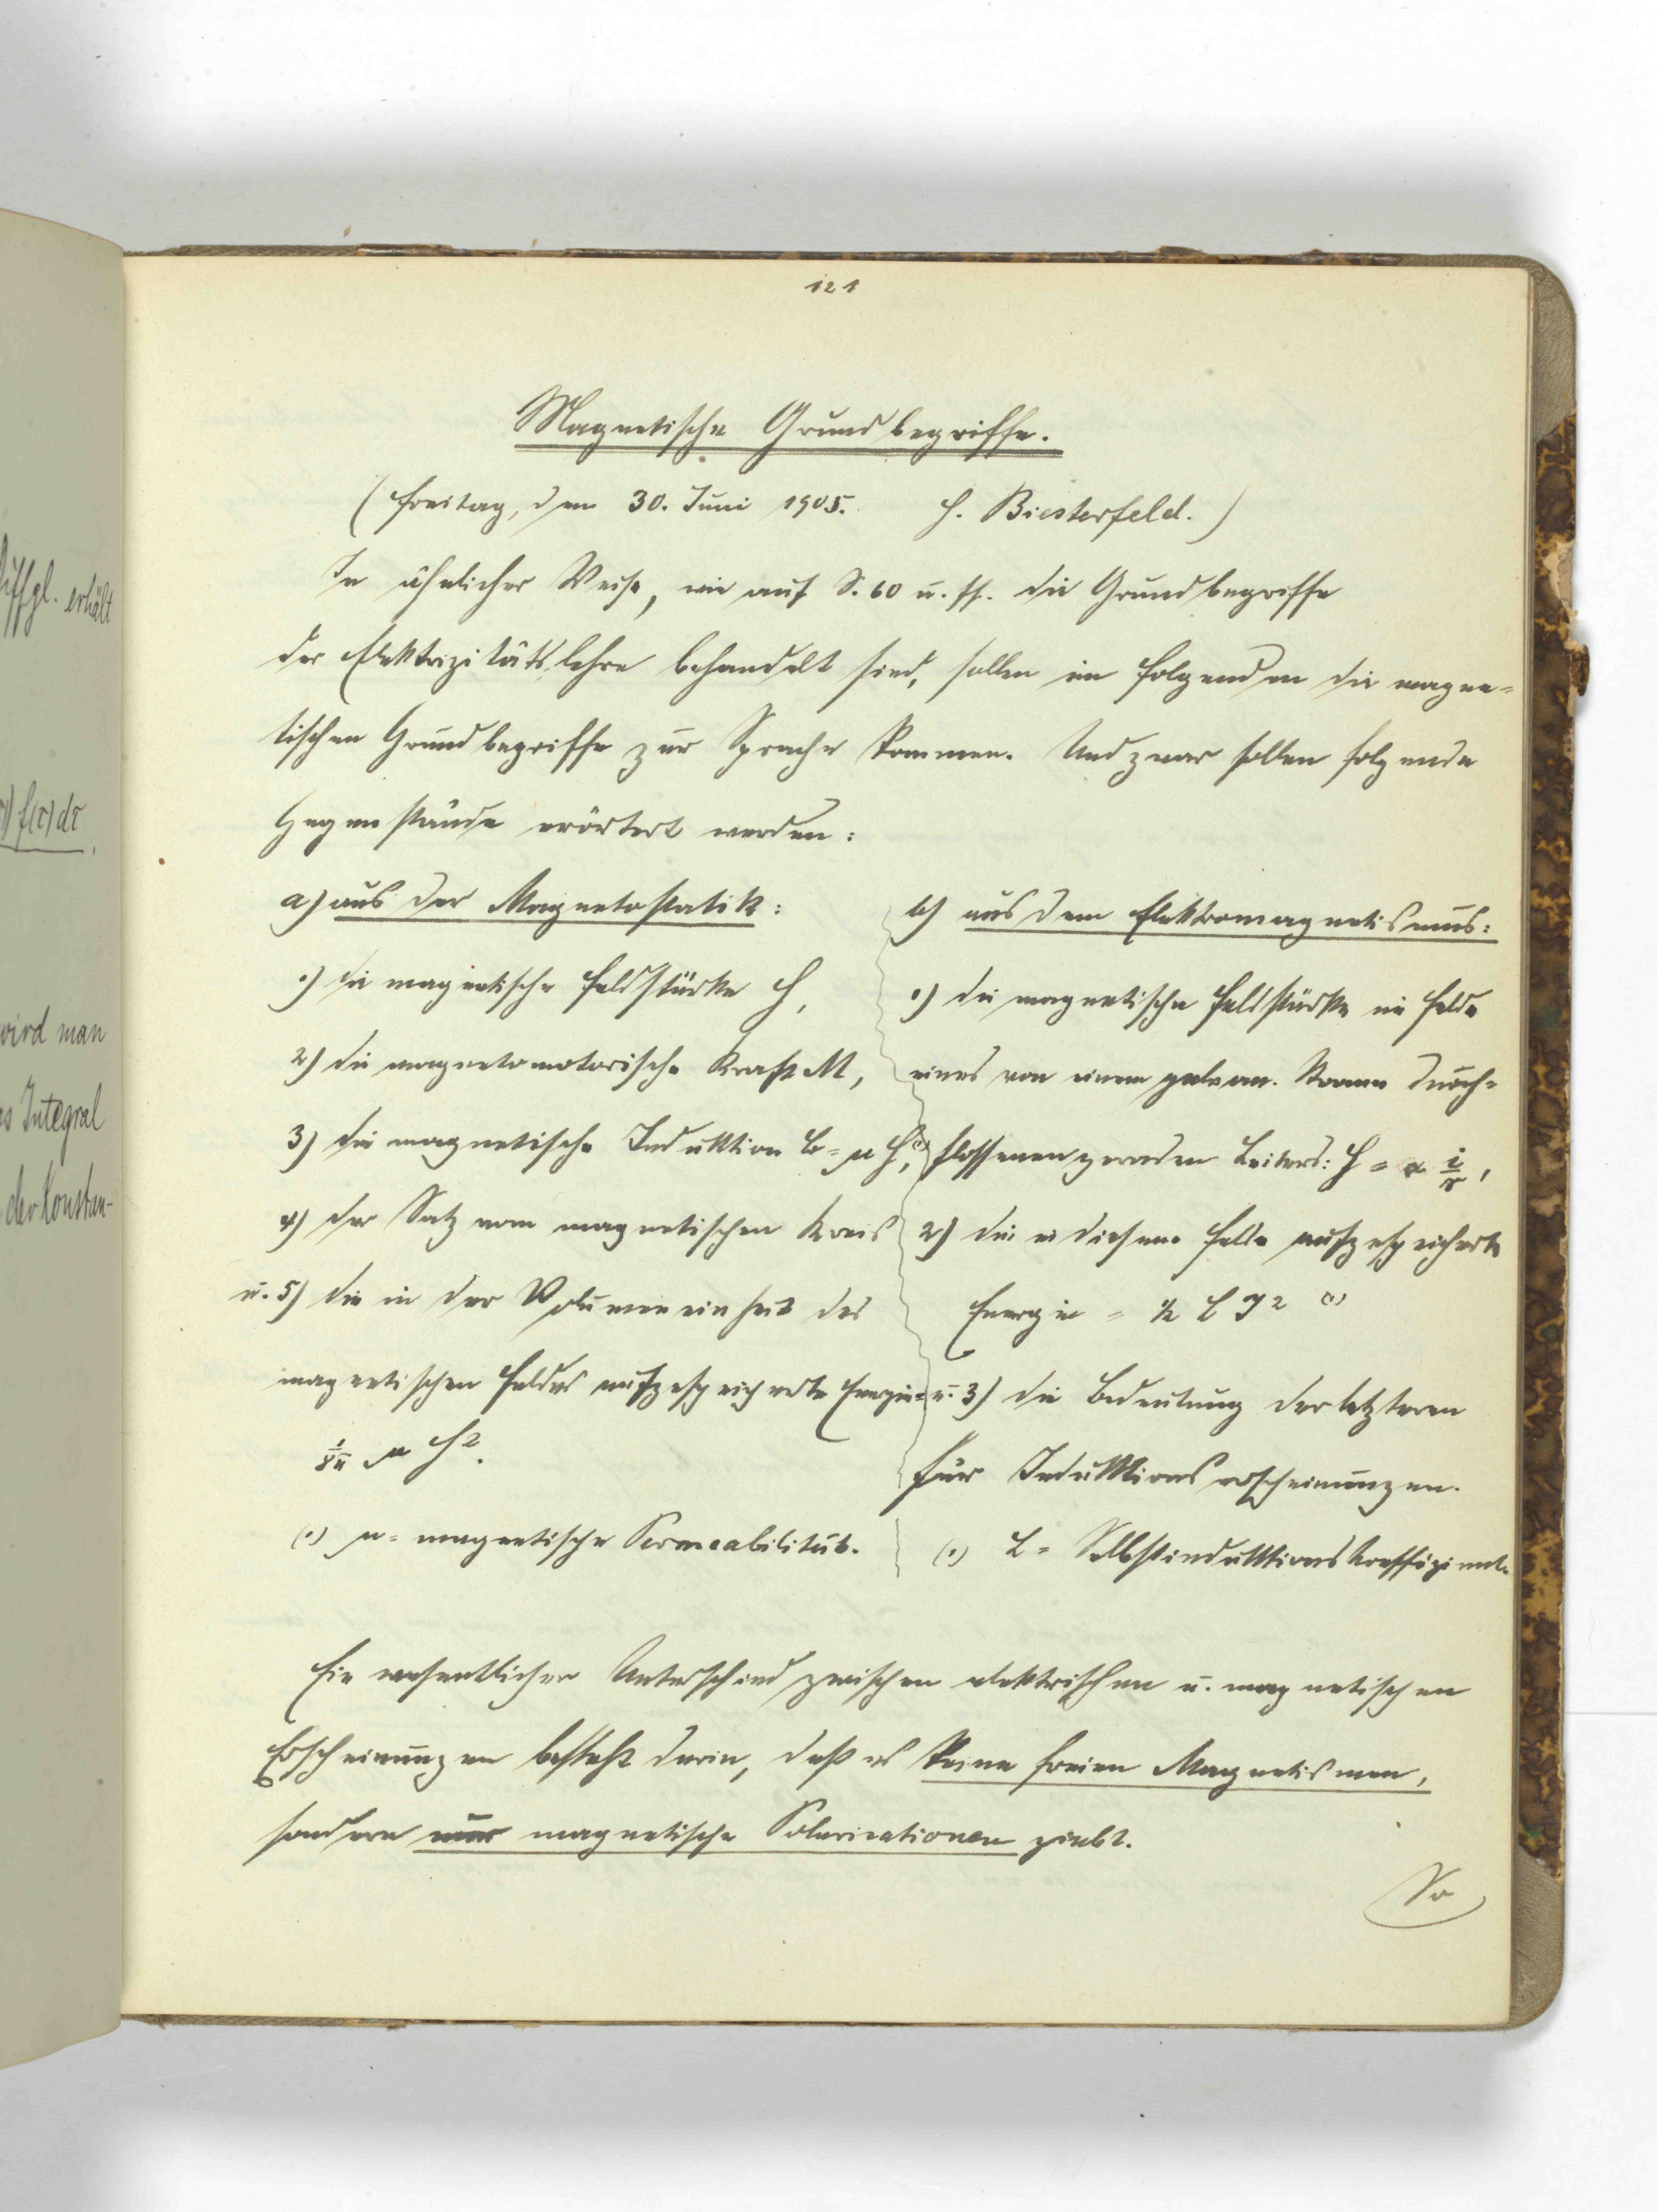 121
Magnetische Grundbegriffe.
(Freitag, den 30. Juni 1905. H. Biesterfeld.)
In ähnlicher Weise, wie auf S. 60 u. ff. die Grundbegriffe
der Elektrizitätslehre behandelt sind, sollen im folgenden die magne-
tischen Grundbegriffe zur Sprache kommen. Und zwar sollen folgende
Gegenstände erörtert werden:
a) aus der Magnetostatik:
1) die magnetische Feldstärke H,
2) die magnetomotorische Kraft M,
3) die magnetische Induktion B = μ H,(1)
4) der Satz vom magnetischen Kreis
u. 5) die in der Volumeneinheit des
magnetischen Feldes aufgespeicherte Energie =
1/8π μ H².
(1) μ = magnetische Permeabilität.
b) aus dem Elektromagnetismus:
1) die magnetische Feldstärke im Felde
eines von einem galvan. Strome durch-
flossenen geraden Leiters: H = α i/r,
2) die in diesem Felde aufgespeicherte
Energie = 1/2 L J² (1)
u. 3) die Bedeutung der letzteren
für Induktionserscheinungen.
(1) L = Selbstinduktionskoeffizient.
Ein wesentlicher Unterschied zwischen elektrischen u. magnetischen
Erscheinungen besteht darin, daß es keine freien Magnetismen,
sondern nur magnetische Polarisationen giebt.
So
Diffgl. erhält
f(τ) dτ
wird man
Integral
der Konstan-